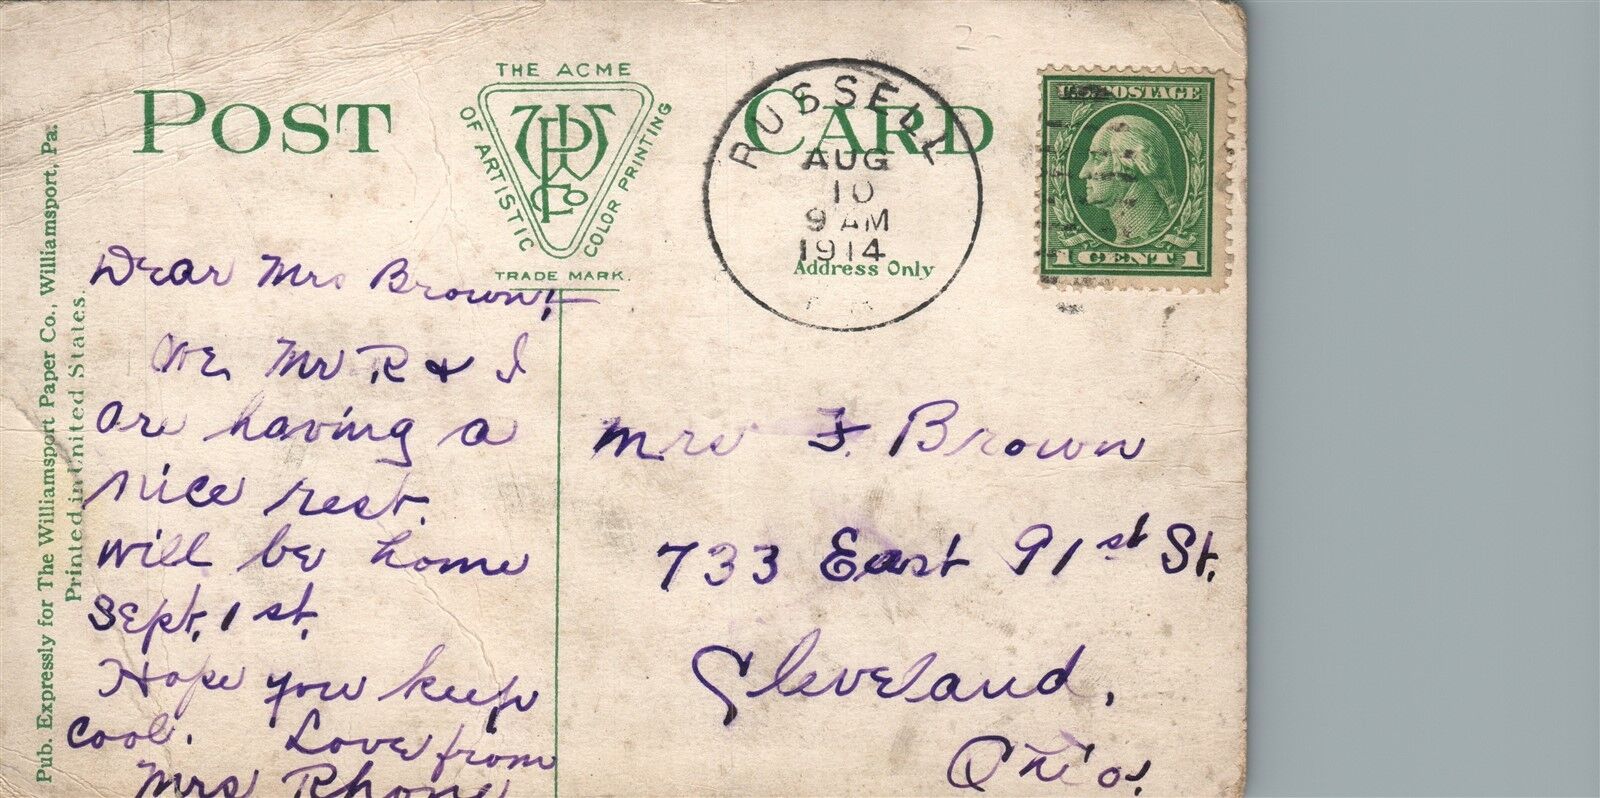 POST CARD
THE ACME
OF ARTISTIC
COLOR PRINTING
TRADE MARK.
RUSSELL
AUG
10
9 AM
1914
Address Only
U.S. POSTAGE
1 CENT 1
Pub. Expressly for The Williamsport Paper Co., Williamsport, Pa.
Printed in United States.
Dear Mrs Brown!
We, Mr R & I
are having a
nice rest.
Will be home
Sept. 1st.
Hope you keep
cool. Love from
Mrs Rhone
Mrs F. Brown
733 East 91st St.
Cleveland,
Ohio.